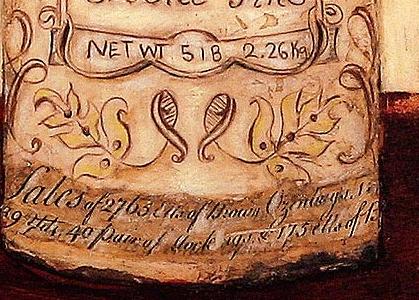 NET WT 5 lB 2.26Kg
Sales of 2763 Ells of Brown Ozenbrigs
yds, 40 pair of Stockings, & 175 ells of